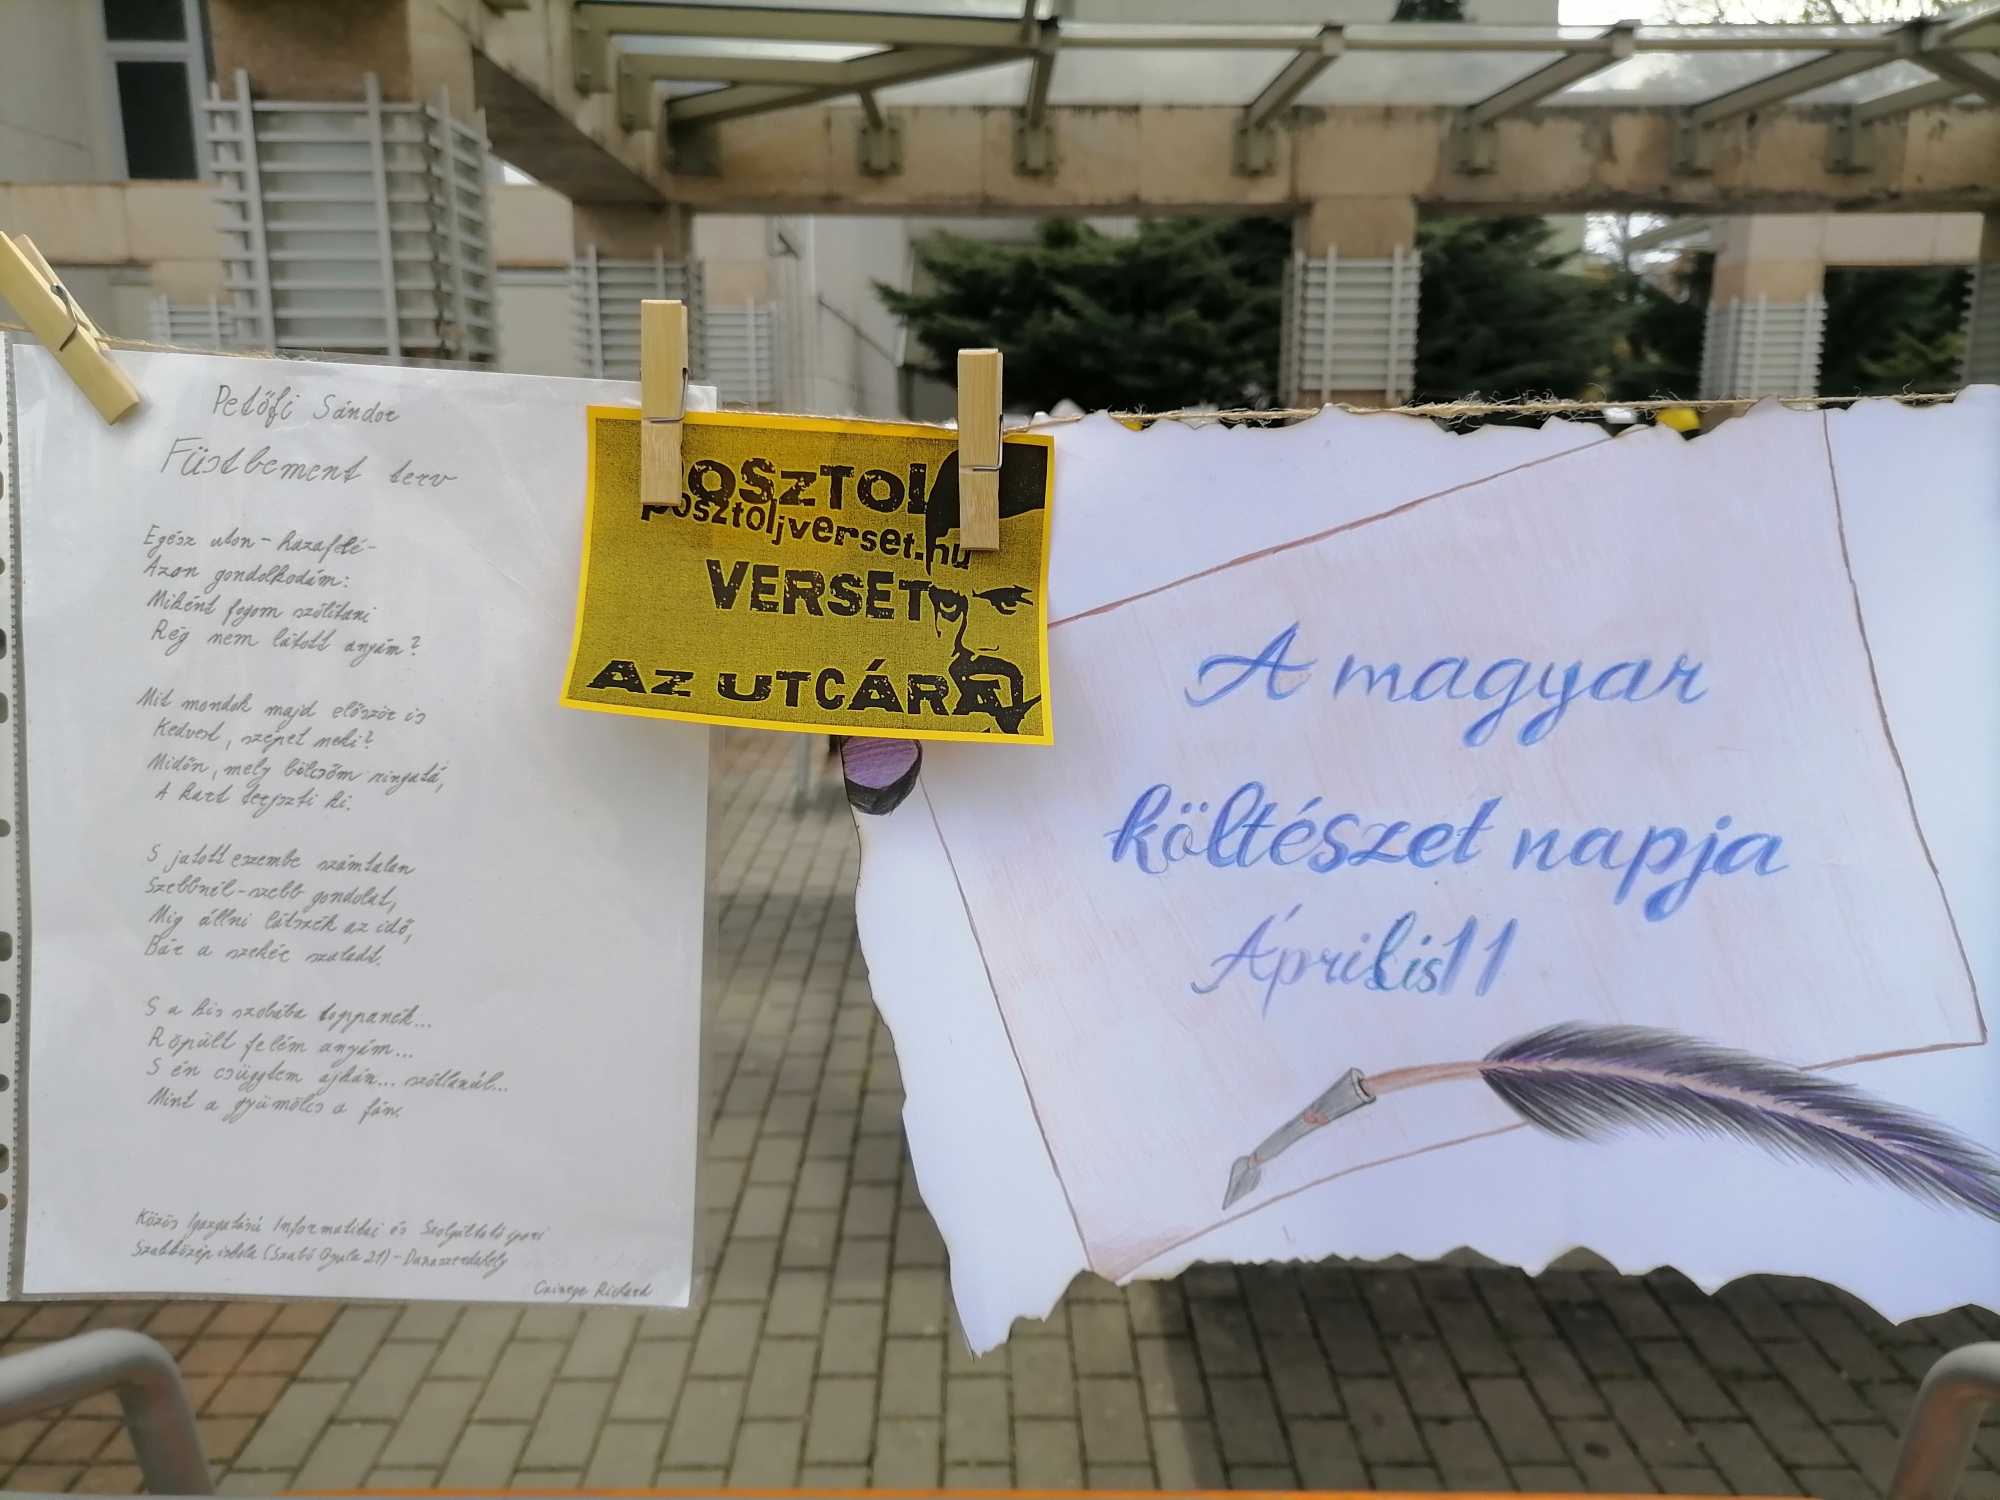 Petőfi Sándor
Füstbement terv
Egész uton - hazafelé -
Azon gondolkodám:
Miként fogom szólitani
Rég nem látott anyám?
Mit mondok majd először is
Kedvest, szépet neki?
Midőn, mely bölcsőm ringatá,
A kart terjszti ki.
S jutott eszembe számtalan
Szebbnél-szebb gondolat,
Mig állni látszék az idő,
Bár a szekér szaladt.
S a kis szobába toppanék...
Röpült felém anyám...
S én csüggtem ajkán... szótlanúl...
Mint a gyümölcs a fán.
Közös Igazgatású Informatikai és Szolgáltató ipari
Szakközép iskola (Szabó Gyula 21) - Dunaszerdahely
Richard
POSZTOLJ
posztoljverset.hu
VERSET
AZ UTCÁRA
A magyar
költészet napja
Április 11